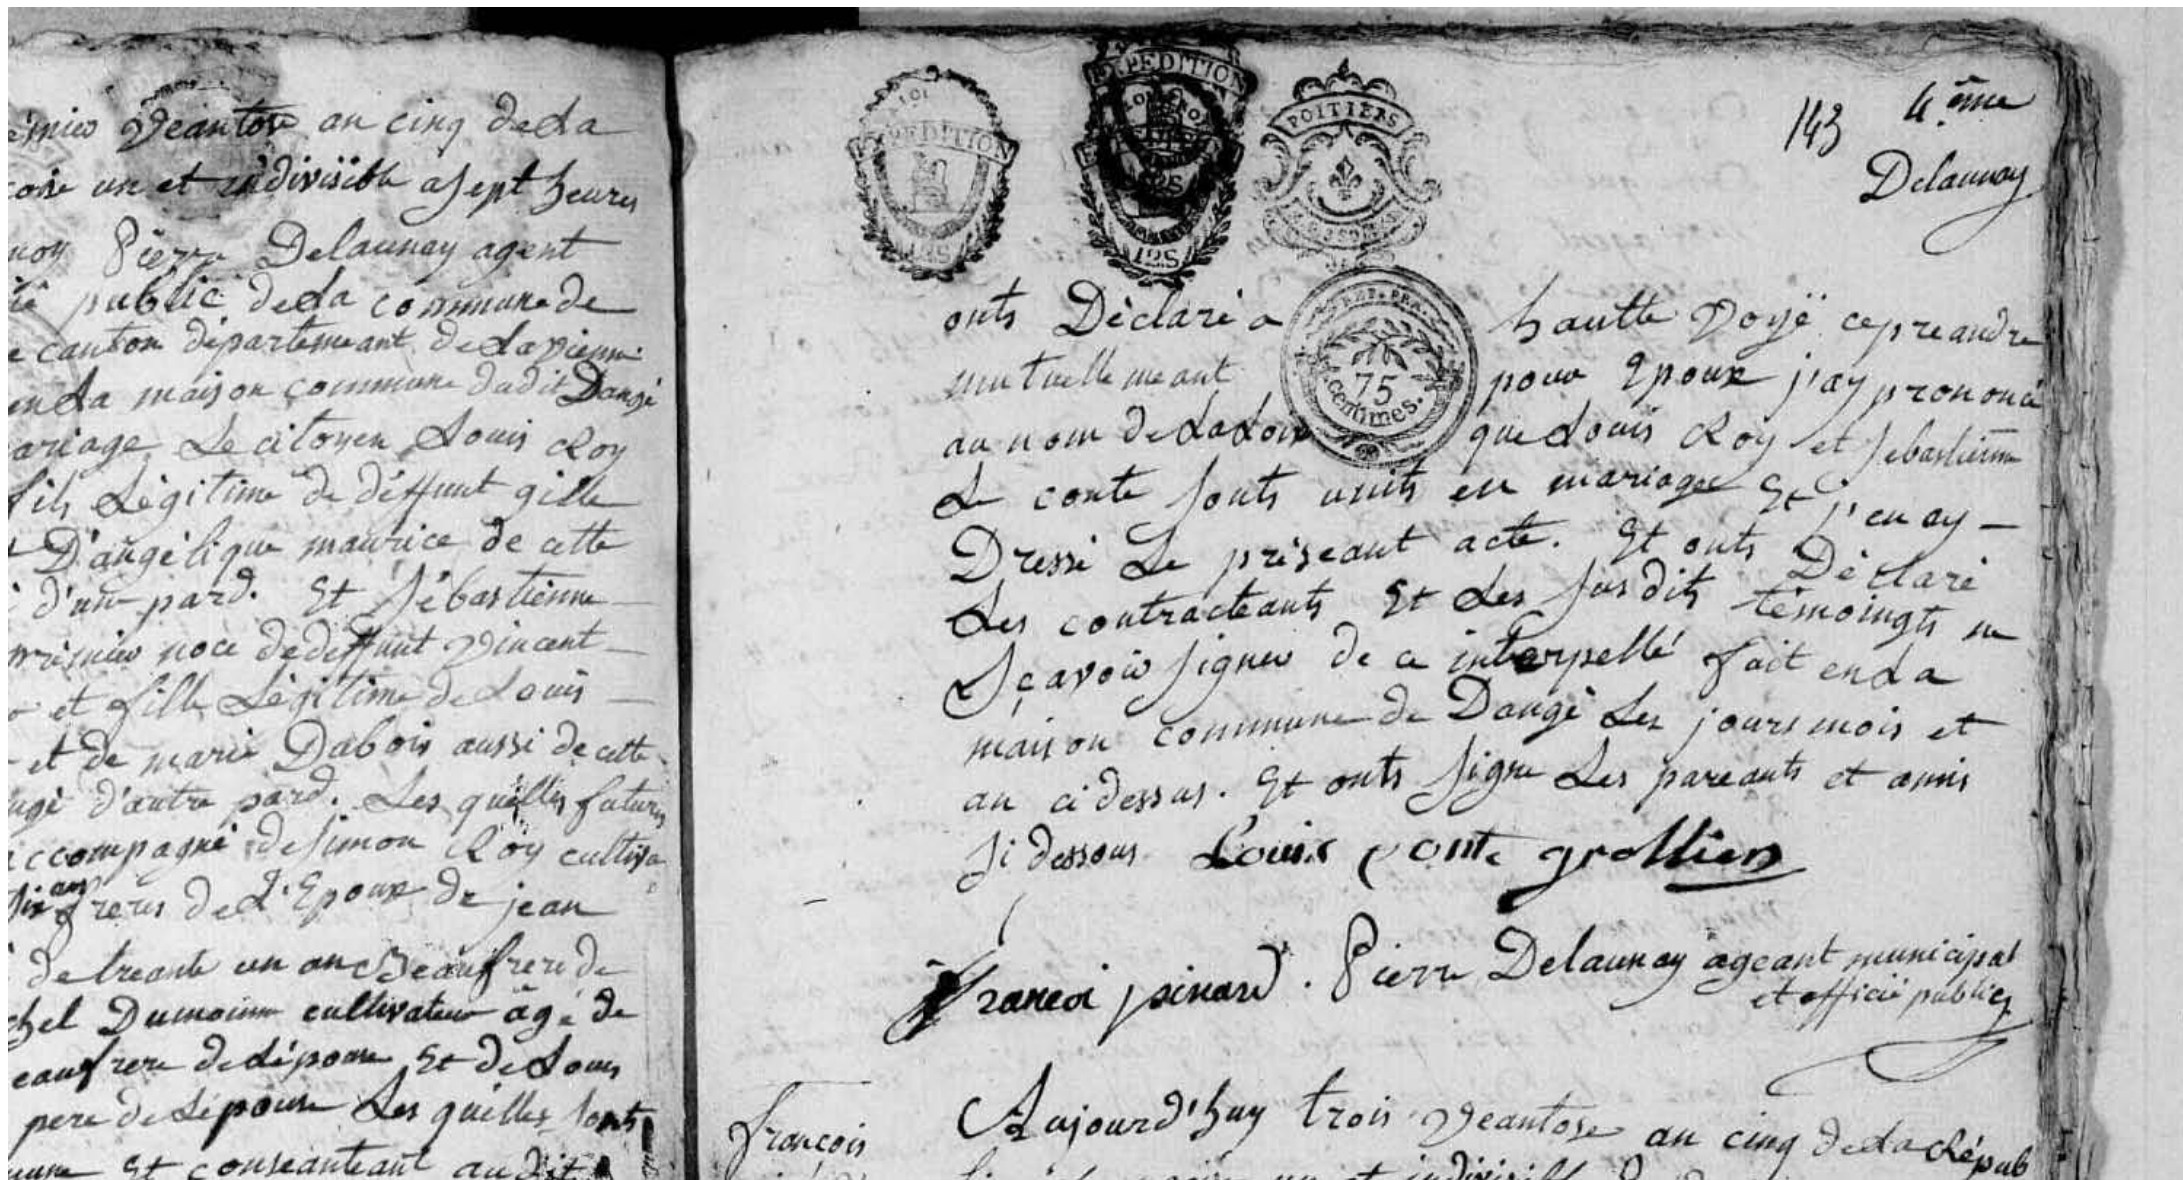 Veantose an cinq de La
un et indivisible a sept heures
moy Pierre Delaunay agent
public de La commune de
canton départemeant de La vienne
en La maison commune dudit Dangé
ariage Le citoyen Louis Roy
fils Légitime de déffunt gille
D'angélique maurice de cette
d'une pard. Et Sébastienne
noce de deffunt vincent
et fille Légitime de Louis
et de marie Dabois aussi de cette
d'autre pard. Les quelles futures
ccompagné de Simon Roy cultiva
freres de L'Epoux de jean
de treante un an Beaufrere de
chel Dumoinne cultivateur âgé de
eaufrere de Lépouse Et de Louis
pere de Lépouse Les quelles sonts
Et conseanteant audit
EXPEDITION
EXPEDITION
12S
POITIERS
143
4.ème
Delaunay
REP. FRA.
75
centimes.
onts Déclaré a hautte voyë ce preandre
mutuellemeant pour Epoux j'ay prononcé
au nom de La Loix que Louis Roy et Sebastienne
Le conte sonts units en mariage Et j'en ay —
Dressé Le préseant acte. Et onts Déclaré
Les contracteants Et Les susdits témoingts ne
Sçavoir signer de ce interpellé fait en La
maison commune de Dangé Les jours mois et
an ci dessus. Et onts signe Les pareants et amis
si dessous Louis conte grollier
francoi pinard. Pierre Delaunay ageant municipal
et officié publicq
françois
Aujourd'huy trois veantose an cinq de La Répub
un et indivisible